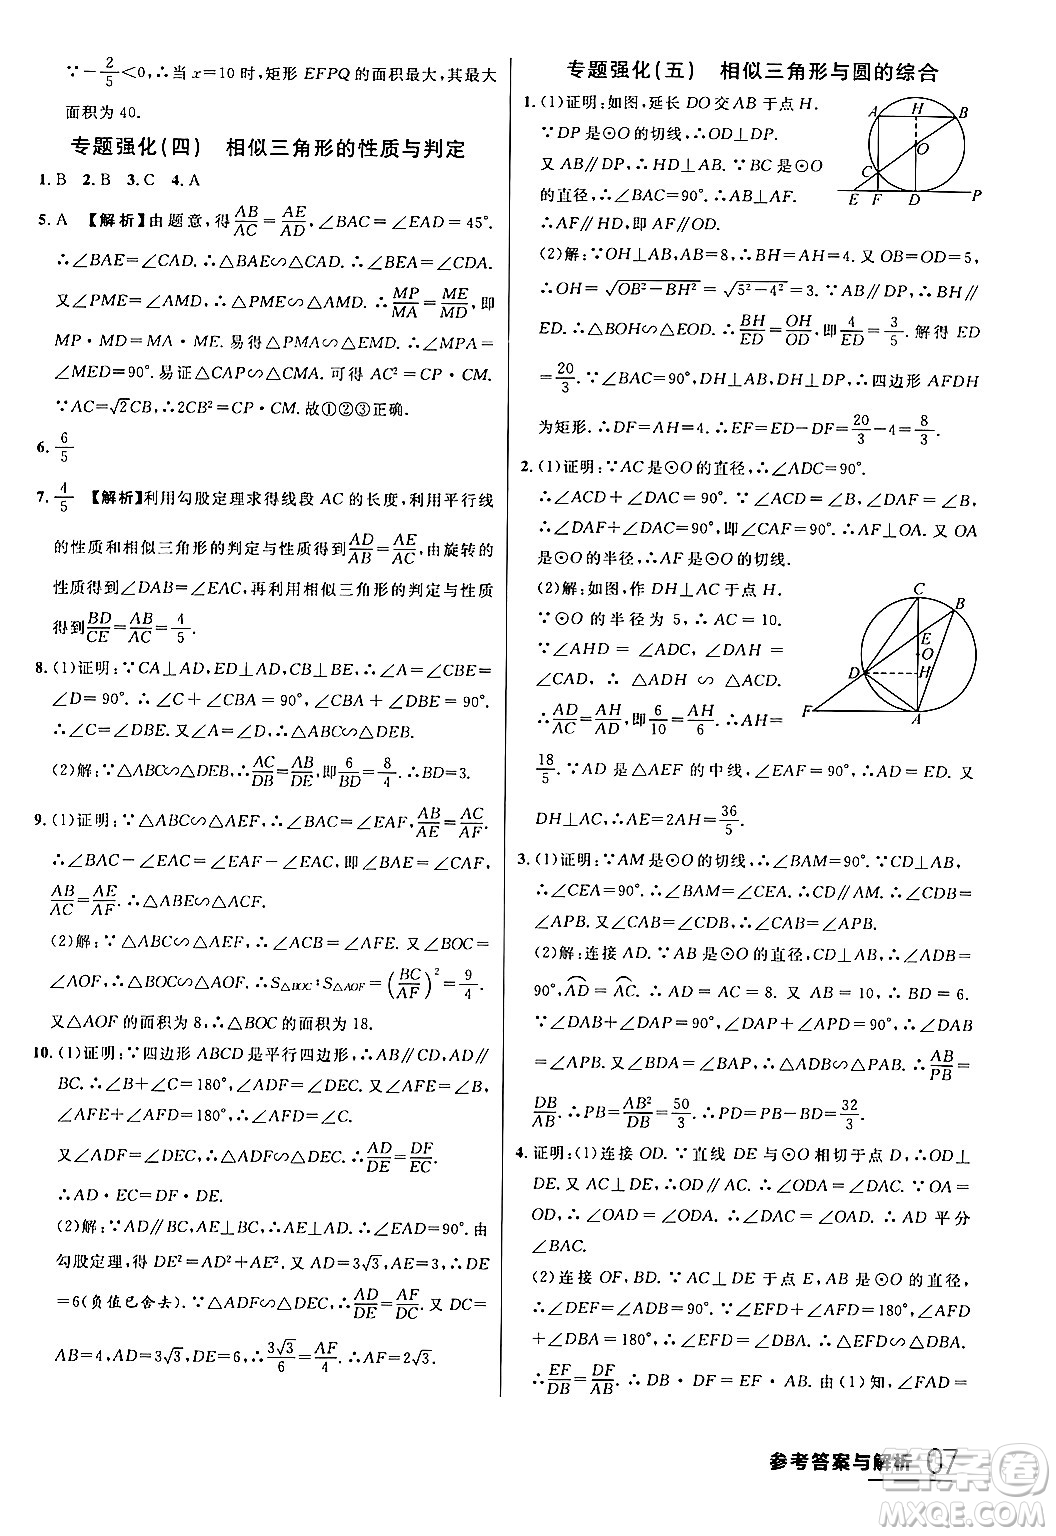 ∵-2/5<0,∴当 x=10 时,矩形 EFPQ 的面积最大,其最大
面积为 40.
专题强化(四) 相似三角形的性质与判定
1. B 2. B 3. C 4. A
5. A 【解析】由题意,得AB/AC=AE/AD,∠BAC=∠EAD=45°.
∴∠BAE=∠CAD.∴△BAE∽△CAD.∴∠BEA=∠CDA.
又∠PME=∠AMD,∴△PME∽△AMD.∴MP/MA=ME/MD,即
MP·MD=MA·ME.易得△PMA∽△EMD.∴∠MPA=
∠MED=90°.易证△CAP∽△CMA.可得 AC²=CP·CM.
∵AC=√2CB,∴2CB²=CP·CM.故①②③正确.
6. 6/5
7. 4/5 【解析】利用勾股定理求得线段 AC 的长度,利用平行线
的性质和相似三角形的判定与性质得到AD/AB=AE/AC,由旋转的
性质得到∠DAB=∠EAC,再利用相似三角形的判定与性质
得到BD/CE=AB/AC=4/5.
8. (1)证明:∵CA⊥AD,ED⊥AD,CB⊥BE,∴∠A=∠CBE=
∠D=90°.∴∠C+∠CBA=90°,∠CBA+∠DBE=90°.
∴∠C=∠DBE.∴△ABC∽△DEB.
(2)解:∵△ABC∽△DEB,∴AC/DB=AB/DE,即6/BD=8/4.∴BD=3.
9. (1)证明:∵△ABC∽△AEF,∴∠BAC=∠EAF,AB/AE=AC/AF.
∴∠BAC-∠EAC=∠EAF-∠EAC,即∠BAE=∠CAF,
AB/AC=AE/AF.∴△ABE∽△ACF.
(2)解:∵△ABC∽△AEF,∴∠ACB=∠AFE.又∠BOC=
∠AOF,∴△BOC∽△AOF.∴S△BOC:S△AOF=(BC/AF)²=9/4.
又△AOF 的面积为 8,∴△BOC 的面积为 18.
10. (1)证明:∵四边形 ABCD 是平行四边形,∴AB∥CD,AD∥
BC.∴∠B+∠C=180°,∠ADF=∠DEC.又∠AFE=∠B,
∠AFE+∠AFD=180°,∴∠AFD=∠C.
又∠ADF=∠DEC,∴△ADF∽△DEC.∴AD/DE=DF/EC.
∴AD·EC=DF·DE.
(2)解:∵AD∥BC,AE⊥BC,∴AE⊥AD.∴∠EAD=90°.由
勾股定理,得 DE²=AD²+AE².又 AD=3√3,AE=3,∴DE
=6(负值已舍去).∵△ADF∽△DEC,∴AD/DE=AF/DC.又 DC=
AB=4,AD=3√3,DE=6,∴3√3/6=AF/4.∴AF=2√3.
专题强化(五) 相似三角形与圆的综合
1. (1)证明:如图,延长 DO 交 AB 于点 H.
∵DP 是⊙O 的切线,∴OD⊥DP.
又 AB∥DP,∴HD⊥AB.∵BC 是⊙O
的直径,∴∠BAC=90°,即 AF⊥AB.
∴AF∥HD,即 AF∥OD.
A H B O C E F D P
(2)解:∵OH⊥AB,AB=8,∴BH=AH=4.又 OB=OD=5,
∴OH=√OB²-BH²=√5²-4²=3.∵AB∥DP,∴BH∥
ED.∴△BOH∽△EOD.∴BH/ED=OH/OD,即4/ED=3/5.解得 ED
=20/3.∵∠BAC=90°,DH⊥AB,DH⊥DP,∴四边形 AFDH
为矩形.∴DF=AH=4.∴EF=ED-DF=20/3-4=8/3.
2. (1)证明:∵AC 是⊙O 的直径,∴∠ADC=90°.
∴∠ACD+∠DAC=90°.∵∠ACD=∠B,∠DAF=∠B,
∴∠DAF+∠DAC=90°,即∠CAF=90°.∴AF⊥OA.又 OA
是⊙O 的半径,∴AF 是⊙O 的切线.
(2)解:如图,作 DH⊥AC 于点 H.
∵⊙O 的半径为 5,∴AC=10.
∵∠AHD=∠ADC=90°,∠DAH=
∠CAD,∴△ADH∽△ACD.
∴AD/AC=AH/AD,即6/10=AH/6.∴AH=
C B E O D H F A
18/5.∵AD 是△AEF 的中线,∠EAF=90°,∴AD=ED.又
DH⊥AC,∴AE=2AH=36/5.
3. (1)证明:∵AM 是⊙O 的切线,∴∠BAM=90°.∵CD⊥AB,
∴∠CEA=90°.∴∠BAM=∠CEA.∴CD∥AM.∴∠CDB=
∠APB.又∠CAB=∠CDB,∴∠CAB=∠APB.
(2)解:连接 AD.∵AB 是⊙O 的直径,CD⊥AB,∴∠ADB=
90°,AD=AC.∴AD=AC=8.又 AB=10,∴BD=6.
∵∠BAD+∠DAP=90°,∠DAP+∠APD=90°,∴∠DAB
=∠APB.又∠ADB=∠PAB,∴△ADB∽△PAB.∴AB/PB=
DB/AB.∴PB=AB²/DB=50/3.∴DP=50/3-6=32/3.
4. 证明:(1)连接 OD.∵直线 DE 与⊙O 相切于点 D,∴OD⊥
DE.∵DE⊥AF,∴OD∥AC.∴∠ODA=∠DAC.∵OA=
OD,∴∠OAD=∠ODA.∴∠DAC=∠OAD.∴AD 平分
∠BAC.
(2)连接 OF,BD.∵AC⊥DE 于点 E,AB 是⊙O 的直径,
∴∠DEF=∠ADB=90°.∵∠EFD+∠AFD=180°,∠AFD
+∠DBA=180°,∴∠EFD=∠DBA.∴△EFD∽△DBA.
∴EF/DB=DF/AB.∴DB·DF=EF·AB.由(1)知,∠FAD=
参考答案与解析 07
答案圈
MXQE.COM